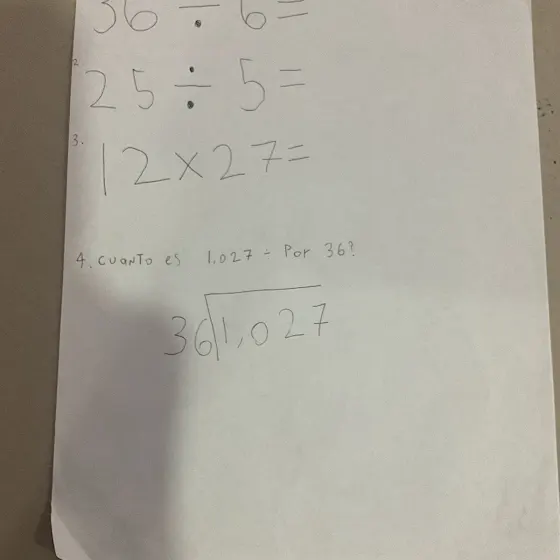 36 ÷ 6=
2
25 ÷ 5=
3.
12×27=
4. cuanto es 1,027 ÷ Por 36?
36 1,027